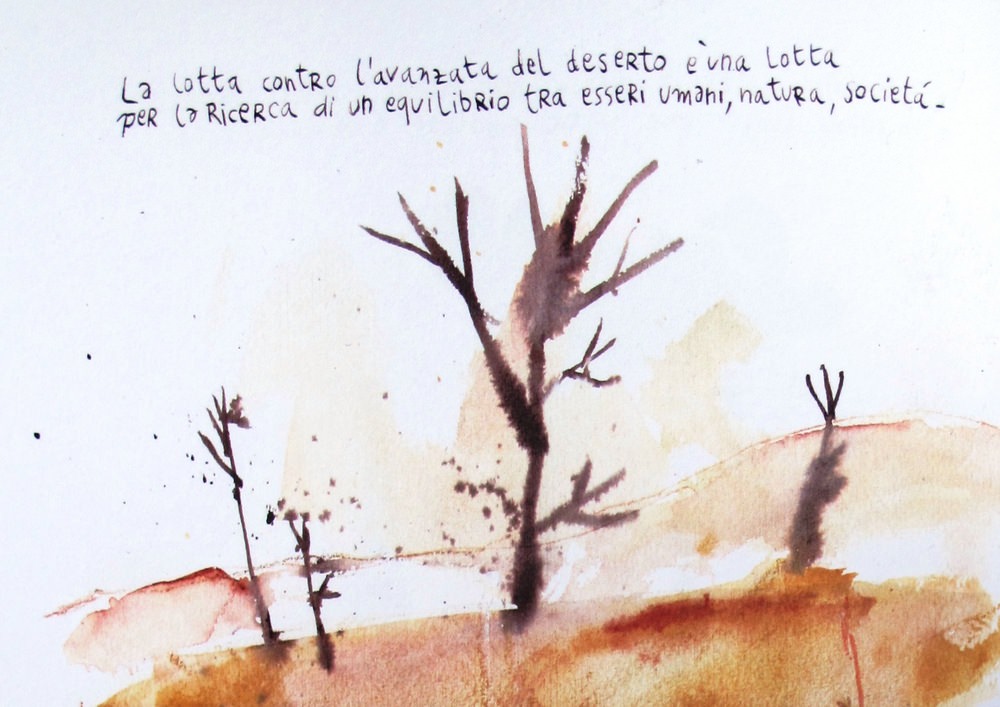 La lotta contro l'avanzata del deserto è una lotta
per la Ricerca di un equilibrio tra esseri umani, natura, societá-